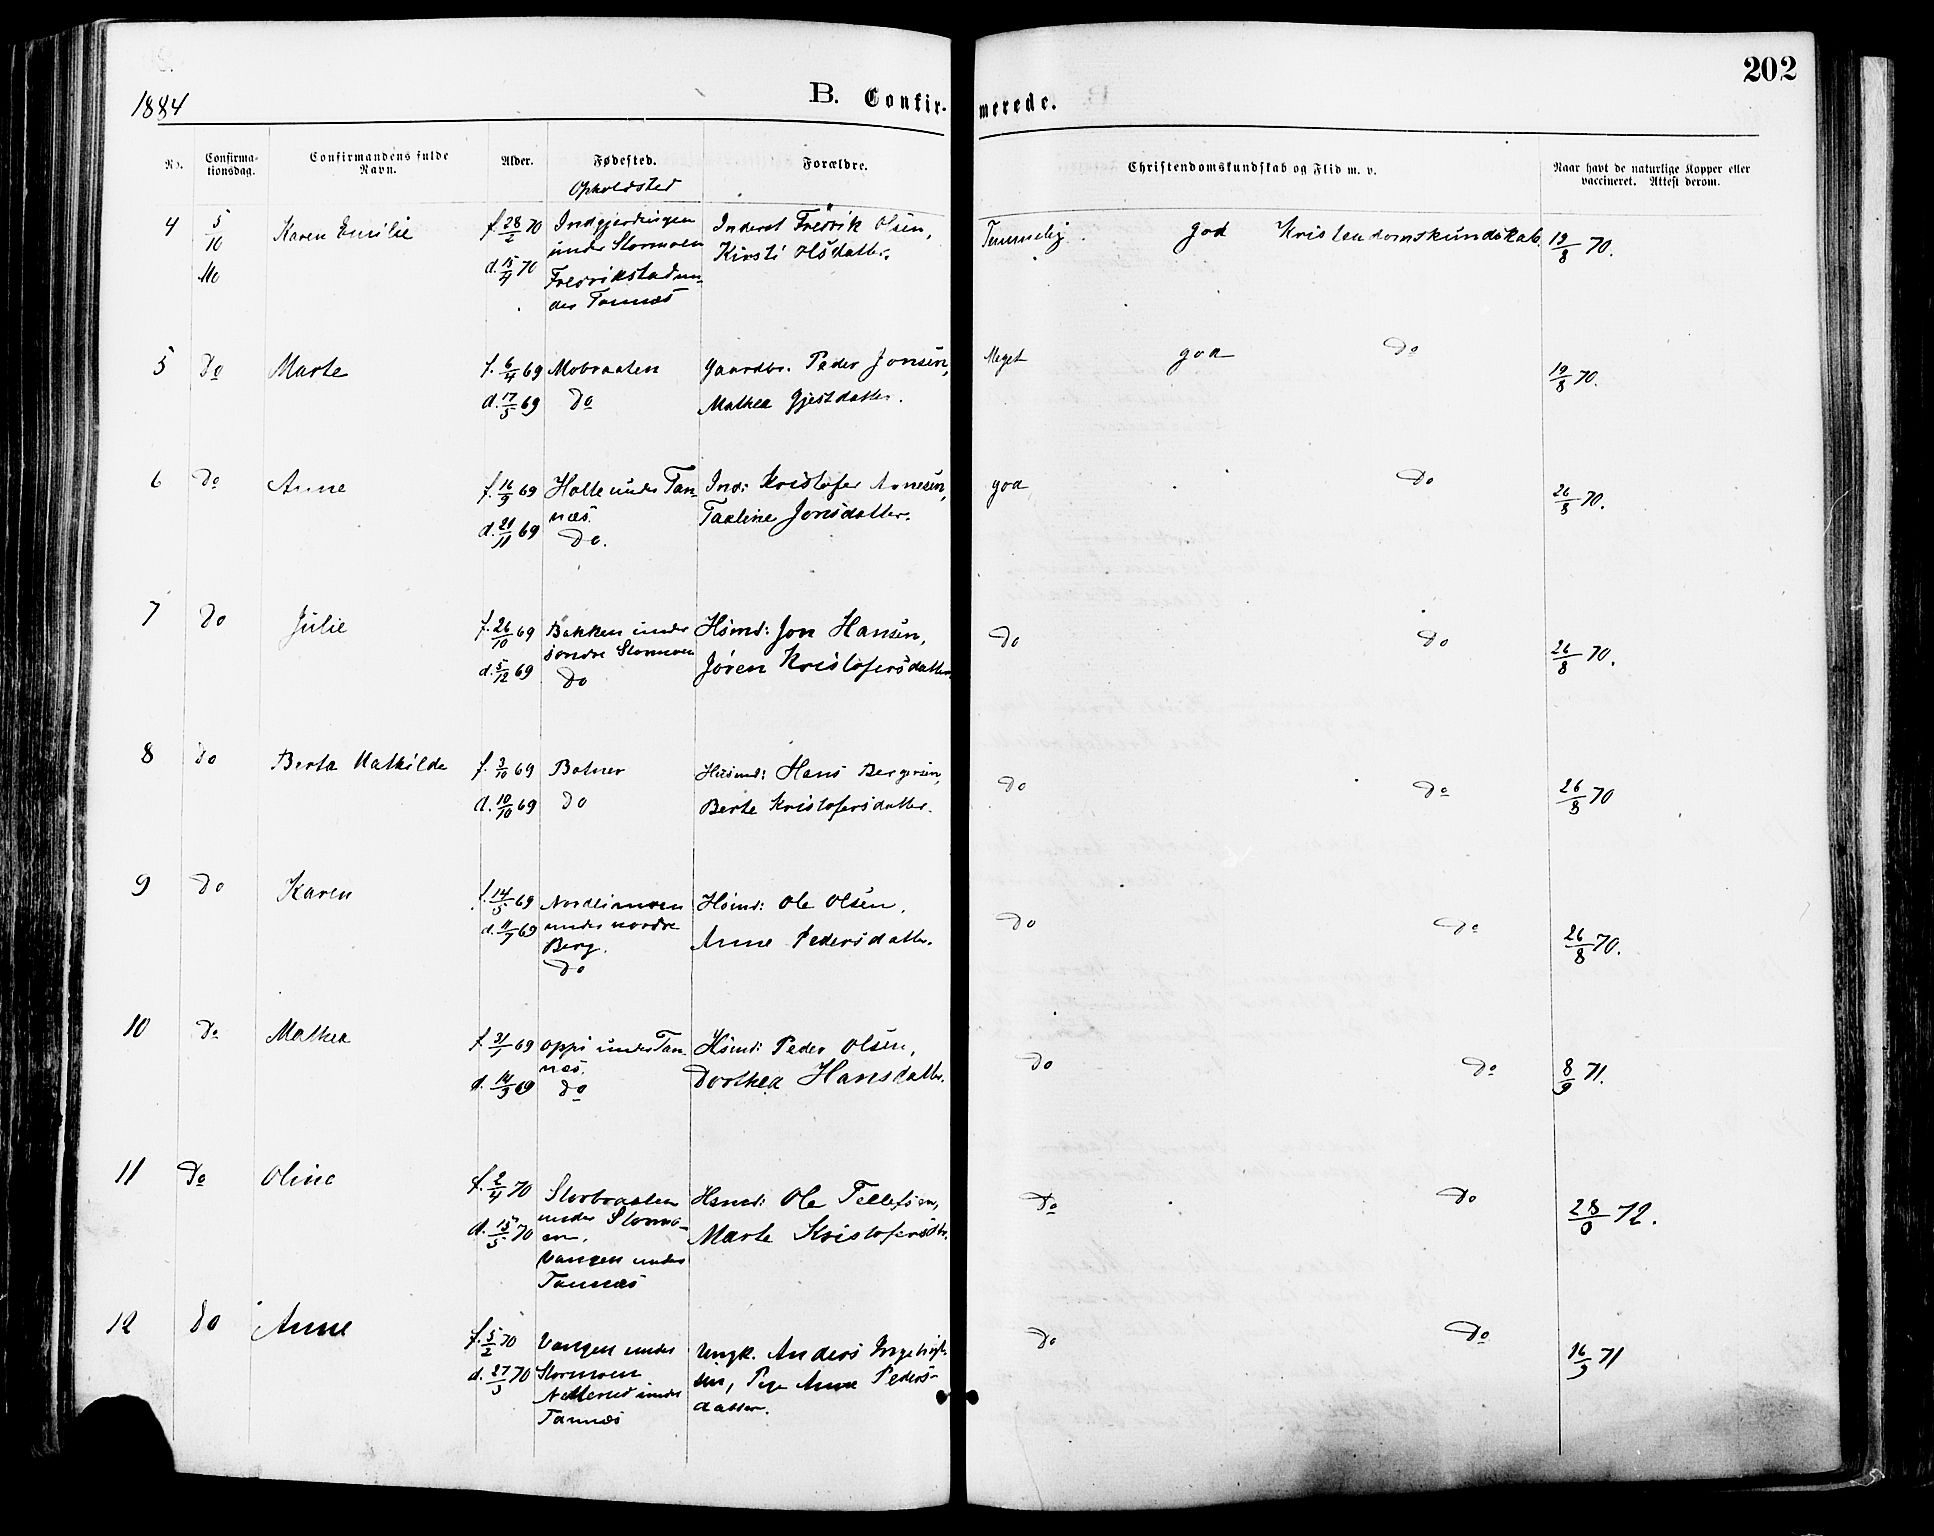 202
1884
B. Confir-
merede.
No.
Confirma-
tionsdag.
Confirmandens fulde
Navn.
Alder.
Fødested.
Opholdsted
Forældre.
Christendomskundskab og Flid m. v.
Naar havt de naturlige Kopper eller
vaccineret. Attest derom.
4 5/10 Mo Karen Emilie f. 28/2 70 Indgjerdingen Inderst Fredrik Olsen, Temmelig god Kristendomskundskab 19/8 70.
d. 15/4 70 under Stormoen Kirsti Olsdatter.
Fredrikstad un-
der Tannæs
5 Do Marte f. 6/4 69 Mobraaten Gaardbr. Peder Jonsen, Meget god Do 19/8 70.
d. 17/5 69 Do Mathea Gjestdatter.
6 Do Anne f. 16/9 69 Holte under Tan- Ind: Kristofer Arnesen, god Do 26/8 70.
d. 21/11 69 næs. Taaline Jonsdatter.
Do.
7 Do Julie f. 26/10 69 Bakken under Hsmd: Jon Hansen, Do Do 26/8 70.
d. 5/12 69 søndre Stormoen Jøren Kristofersdatter
Do
8 Do Berta Mathilde f. 3/10 69 Botner Husmd: Hans Bergersen, Do Do 26/8 70
d. 10/10 69 Do Berte Kristofersdatter.
9 Do Karen f. 14/5 69 Nordlimoen Hsmd: Ole Olsen, Do Do 26/8 70.
d. 11/7 69 under nordre Anne Pedersdatter.
Berg.
Do
10 Do Mathea f. 31/1 69 Oppi under Tan- Hsmd: Peder Olsen, Do Do 8/9 71.
d. 14/3 69 næs. Dorthea Hansdatter.
Do
11 Do Oline f. 2/4 70 Storbraaten Hsmd: Ole Tellefsen, Do Do 28/8 72.
d. 15/5 70 under Stormo- Marte Kristofersdtr.
en.
Vangen under
Tannæs
12 Do Anne f. 5/2 70 Vangen under Ungk. Anders Ingebrigt- Do Do 16/9 71
d. 27/3 70 Stormoen sen, Pige Anne Peders-
under datter.
Tannæs